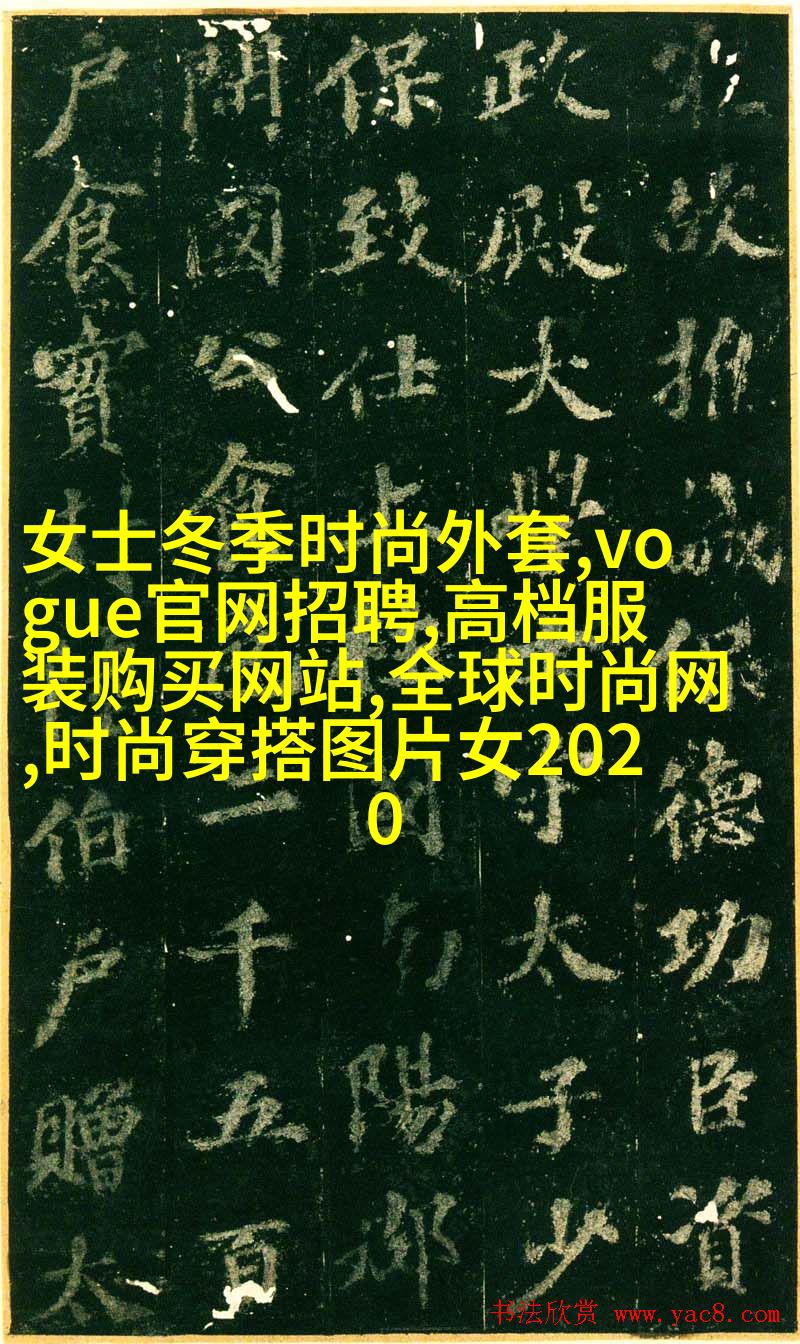 故推誠德功臣資
政殿大學守太子少
保致仕上國陽郡
開國公食二千五百
户食實封伯户贈太
女士冬季时尚外套,vo
gue官网招聘,高档服
装购买网站,全球时尚网
,时尚穿搭图片女202
0
书法欣赏 www.yac8.com